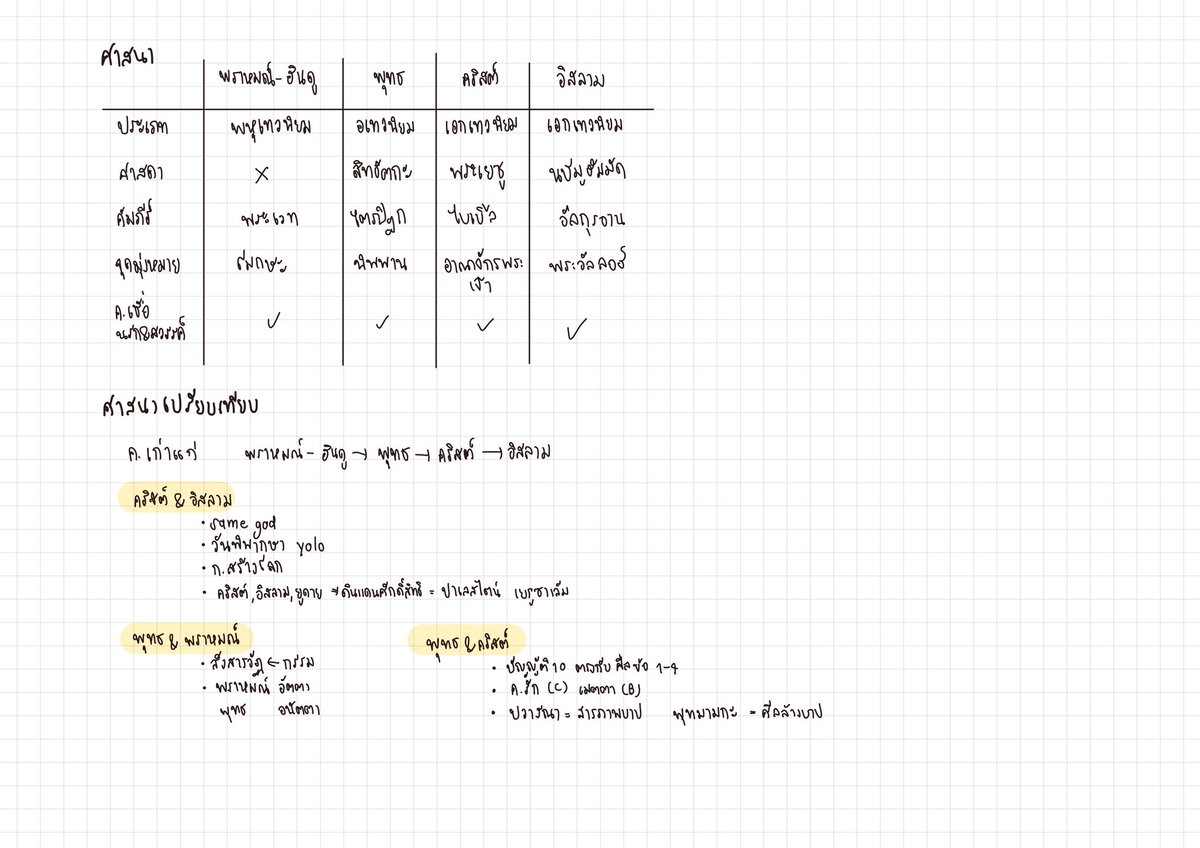 ศาสนา
พราหมณ์-ฮินดู พุทธ คริสต์ อิสลาม
ประเภท พหุเทวนิยม อเทวนิยม เอกเทวนิยม เอกเทวนิยม
ศาสดา X สิทธัตถะ พระเยซู นบีมูฮัมมัด
คัมภีร์ พระเวท ไตรปิฎก ไบเบิ้ล อัลกุรอาน
จุดมุ่งหมาย โมกษะ นิพพาน อาณาจักรพระ พระอัลลอฮ์
เจ้า
ค.เชื่อ
นรก&สวรรค์ ✓ ✓ ✓ ✓
ศาสนาเปรียบเทียบ
ค.เก่าแก่ พราหมณ์-ฮินดู → พุทธ → คริสต์ → อิสลาม
คริสต์ & อิสลาม
• same god
• วันพิพากษา yolo
• ก.สร้างโลก
• คริสต์, อิสลาม, ยูดาย → ดินแดนศักดิ์สิทธิ์ = ปาเลสไตน์ เยรูซาเล็ม
พุทธ & พราหมณ์
• สังสารวัฏ ← กรรม
• พราหมณ์ อัตตา
พุทธ อนัตตา
พุทธ & คริสต์
• บัญญัติ 10 ตรงกับ ศีลข้อ 1-4
• ค.รัก (C) เมตตา (B)
• ปวารณา = สารภาพบาป พุทธมามกะ = ศีลล้างบาป